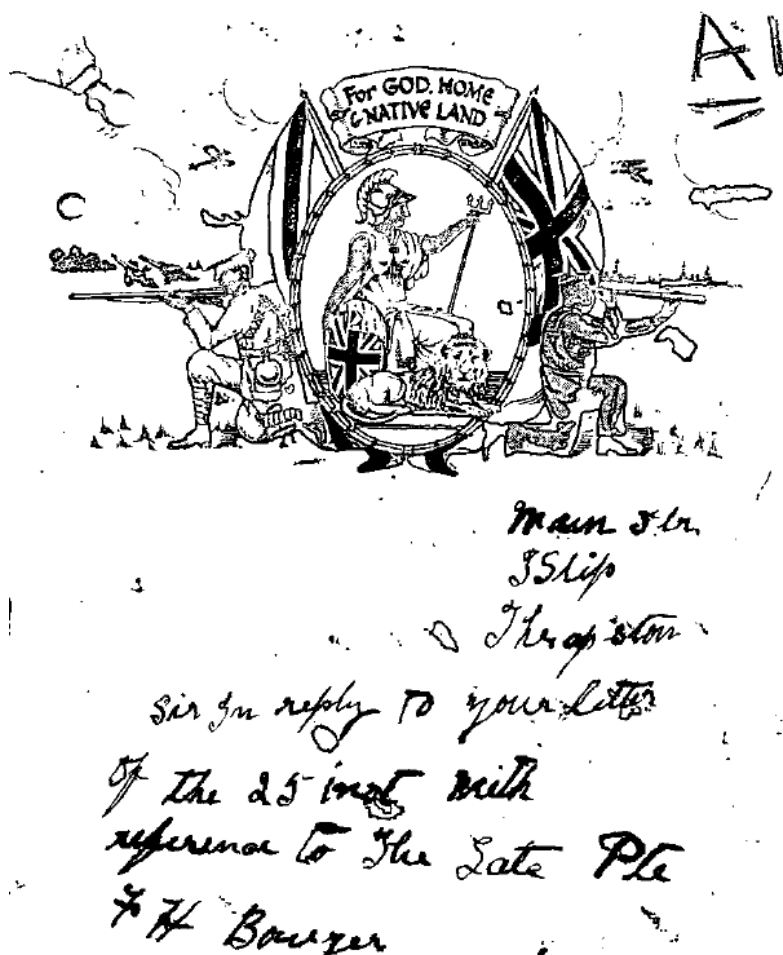 For GOD. HOMe
& NATIVe LAND
Main Str.
ISlip
Thrapston
Sir In reply to your letter
of the 25 inst with
reference to The Late Pte
F H Bowyer